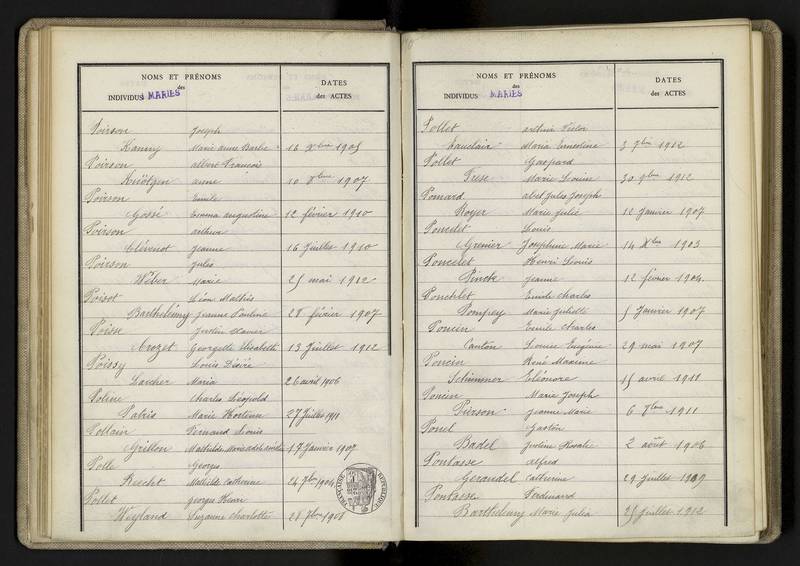 NOMS ET PRÉNOMS
des
INDIVIDUS MARIÉS
DATES
des ACTES
Poirson Joseph
Hanny Marie anne Barbe 16 Xbre 1905
Poirson albert François
anne 10 1907
Poirson Emile
Gossé Emma augustine 12 février 1910
Poirson arthur
Clévenot Jeanne 16 Juillet 1910
Poirson Jules
Wéber Marie 25 mai 1912
Poisot Léon Mathis
Barthelémy Jeanne Pauline 28 février 1907
Poisse Justin Xavier
Crozet Georgette Elisabeth 13 Juillet 1912
Poissy Louis Désiré
Larcher Maria 26 avril 1906
Poline Charles Léopold
Patris Marie Hortense 27 Juillet 1911
Pollain Fernand Louis
Grillon Mathilde Marie 17 Janvier 1907
Polle Georges
Recht Mathilde Catherine 24 7bre 1904
Pollet georges Henri
Weyland Suzanne Charlotte 28 7bre 1908
RÉPUBLIQUE FRANÇAISE
NOMS ET PRÉNOMS
des
INDIVIDUS MARIÉS
DATES
des ACTES
Pollet arthur Victor
Vauclair Maria Ernestine 3 9bre 1902
Pollet Gaspard
Fresse Marie Louise 30 9bre 1912
Pomard abel Jules Joseph
Royer Marie Julie 12 Janvier 1907
Poncelet Louis
Grenier Joséphine Marie 14 Xbre 1903
Poncelet Henri Louis
Pinck Jeanne 12 février 1904
Ponchlet Emile Charles
Pompey Marie Juliette 5 Janvier 1907
Poncin Emile Charles
Canton Louise Eugénie 29 mai 1907
Poncin René Maxime
Schimmer Eléonore 15 avril 1911
Poncin Marie Joseph
Pierson Jeanne Marie 6 7bre 1911
Ponel Gaston
Badel Justine Rosalie 2 août 1906
Pontasse alfred
Gerardel Catherine 29 Juillet 1909
Pontasse Ferdinand
Barthélemy Marie Julia 25 Juillet 1912